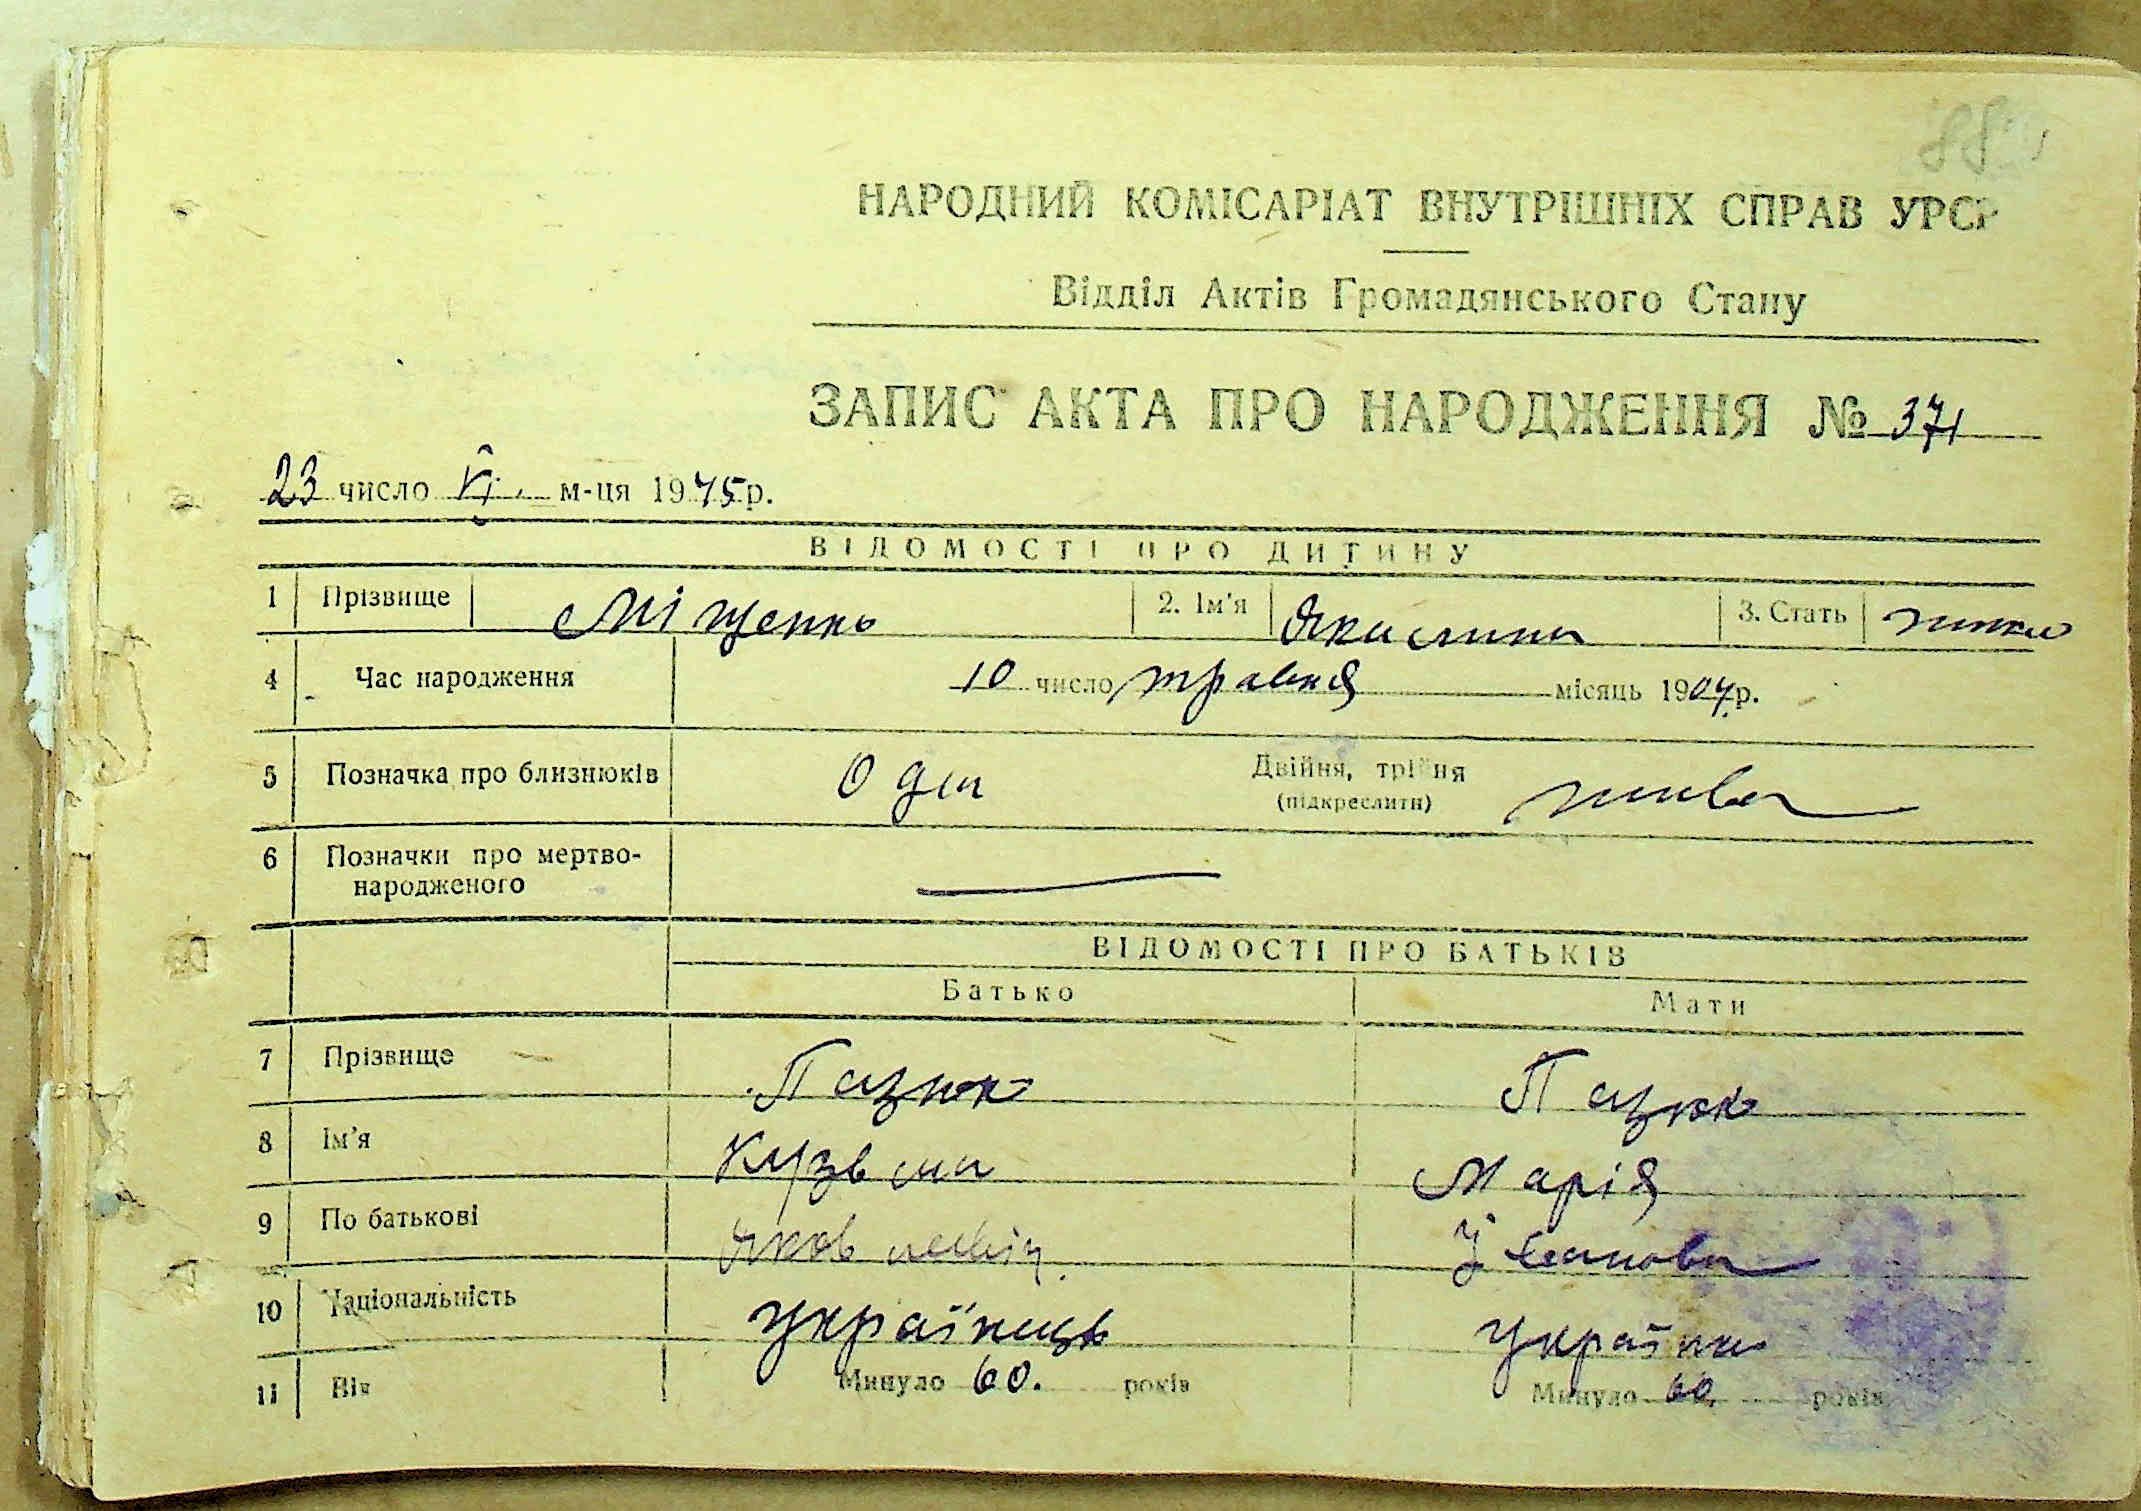 НАРОДНИЙ КОМІСАРІАТ ВНУТРІШНІХ СПРАВ УРСР
Відділ Актів Громадянського Стану
ЗАПИС АКТА ПРО НАРОДЖЕННЯ № 371
23 число VI м-ця 1945 р.
ВІДОМОСТІ ПРО ДИТИНУ
1 Прізвище Міщенко 2. Ім'я Якилина 3. Стать жінка
4 Час народження 10 число травня місяць 1904 р.
5 Позначка про близнюків Одна Двійня, трійня
(підкреслити) жива
6 Позначки про мертво-
народженого
ВІДОМОСТІ ПРО БАТЬКІВ
Батько Мати
7 Прізвище Пазюк Пазюк
8 Ім'я Кузьма Марія
9 По батькові Яковлевіч
10 Національність українець українка
11 Вік Минуло 60. років Минуло 60. років